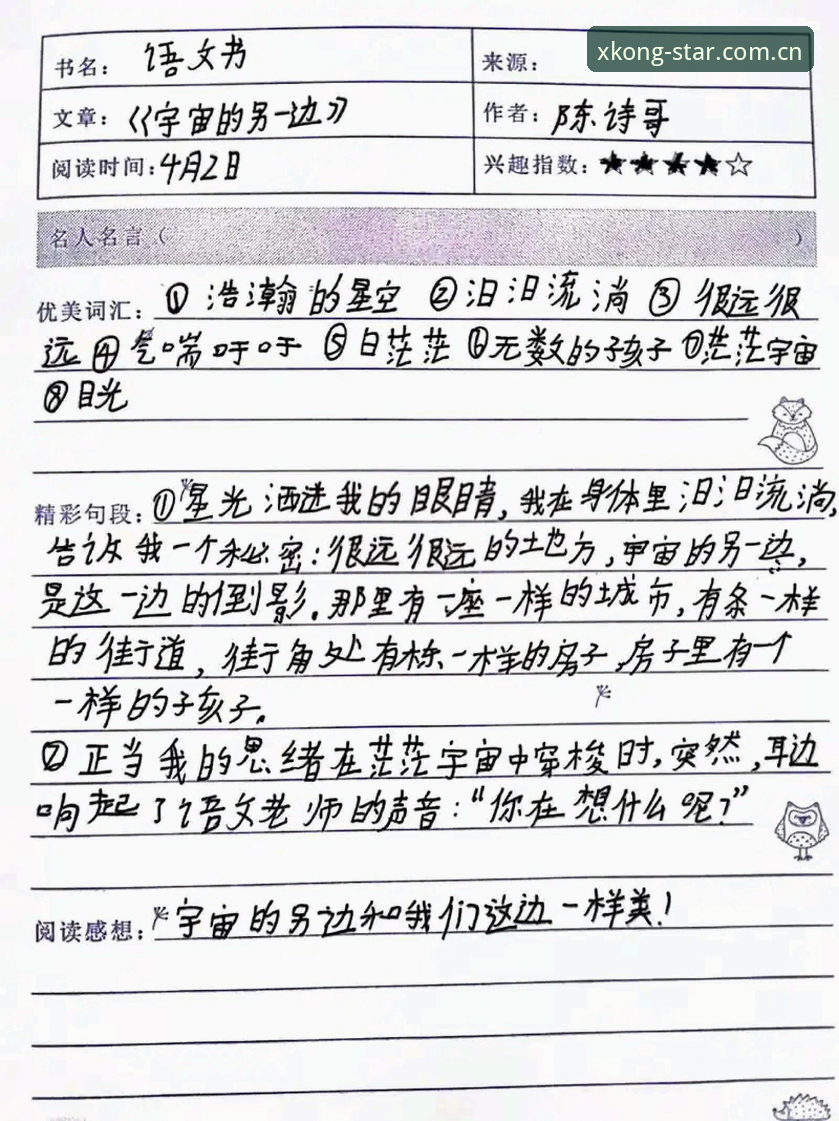 xkong-star.com.cn
书名： 语文书 来源：
文章：《宇宙的另一边》 作者：陈诗哥
阅读时间：4月2日 兴趣指数：★★★★☆
名人名言（ ）
优美词汇：① 浩瀚的星空 ②汩汩流淌 ③ 很远很
远 ④气喘吁吁 ⑤白茫茫 ⑥无数的孩子 ⑦茫茫宇宙
⑧目光
精彩句段：①星光洒进我的眼睛，我在身体里汩汩流淌，
告诉我一个秘密：很远很远的地方，宇宙的另一边，
是这一边的倒影。那里有一座一样的城市，有条一样
的街道，街角处有栋一样的房子，房子里有一个
一样的孩子。
② 正当我的思绪在茫茫宇宙中穿梭时，突然，耳边
响起了语文老师的声音：“你在想什么呢？”
阅读感想：宇宙的另边和我们这边一样美！